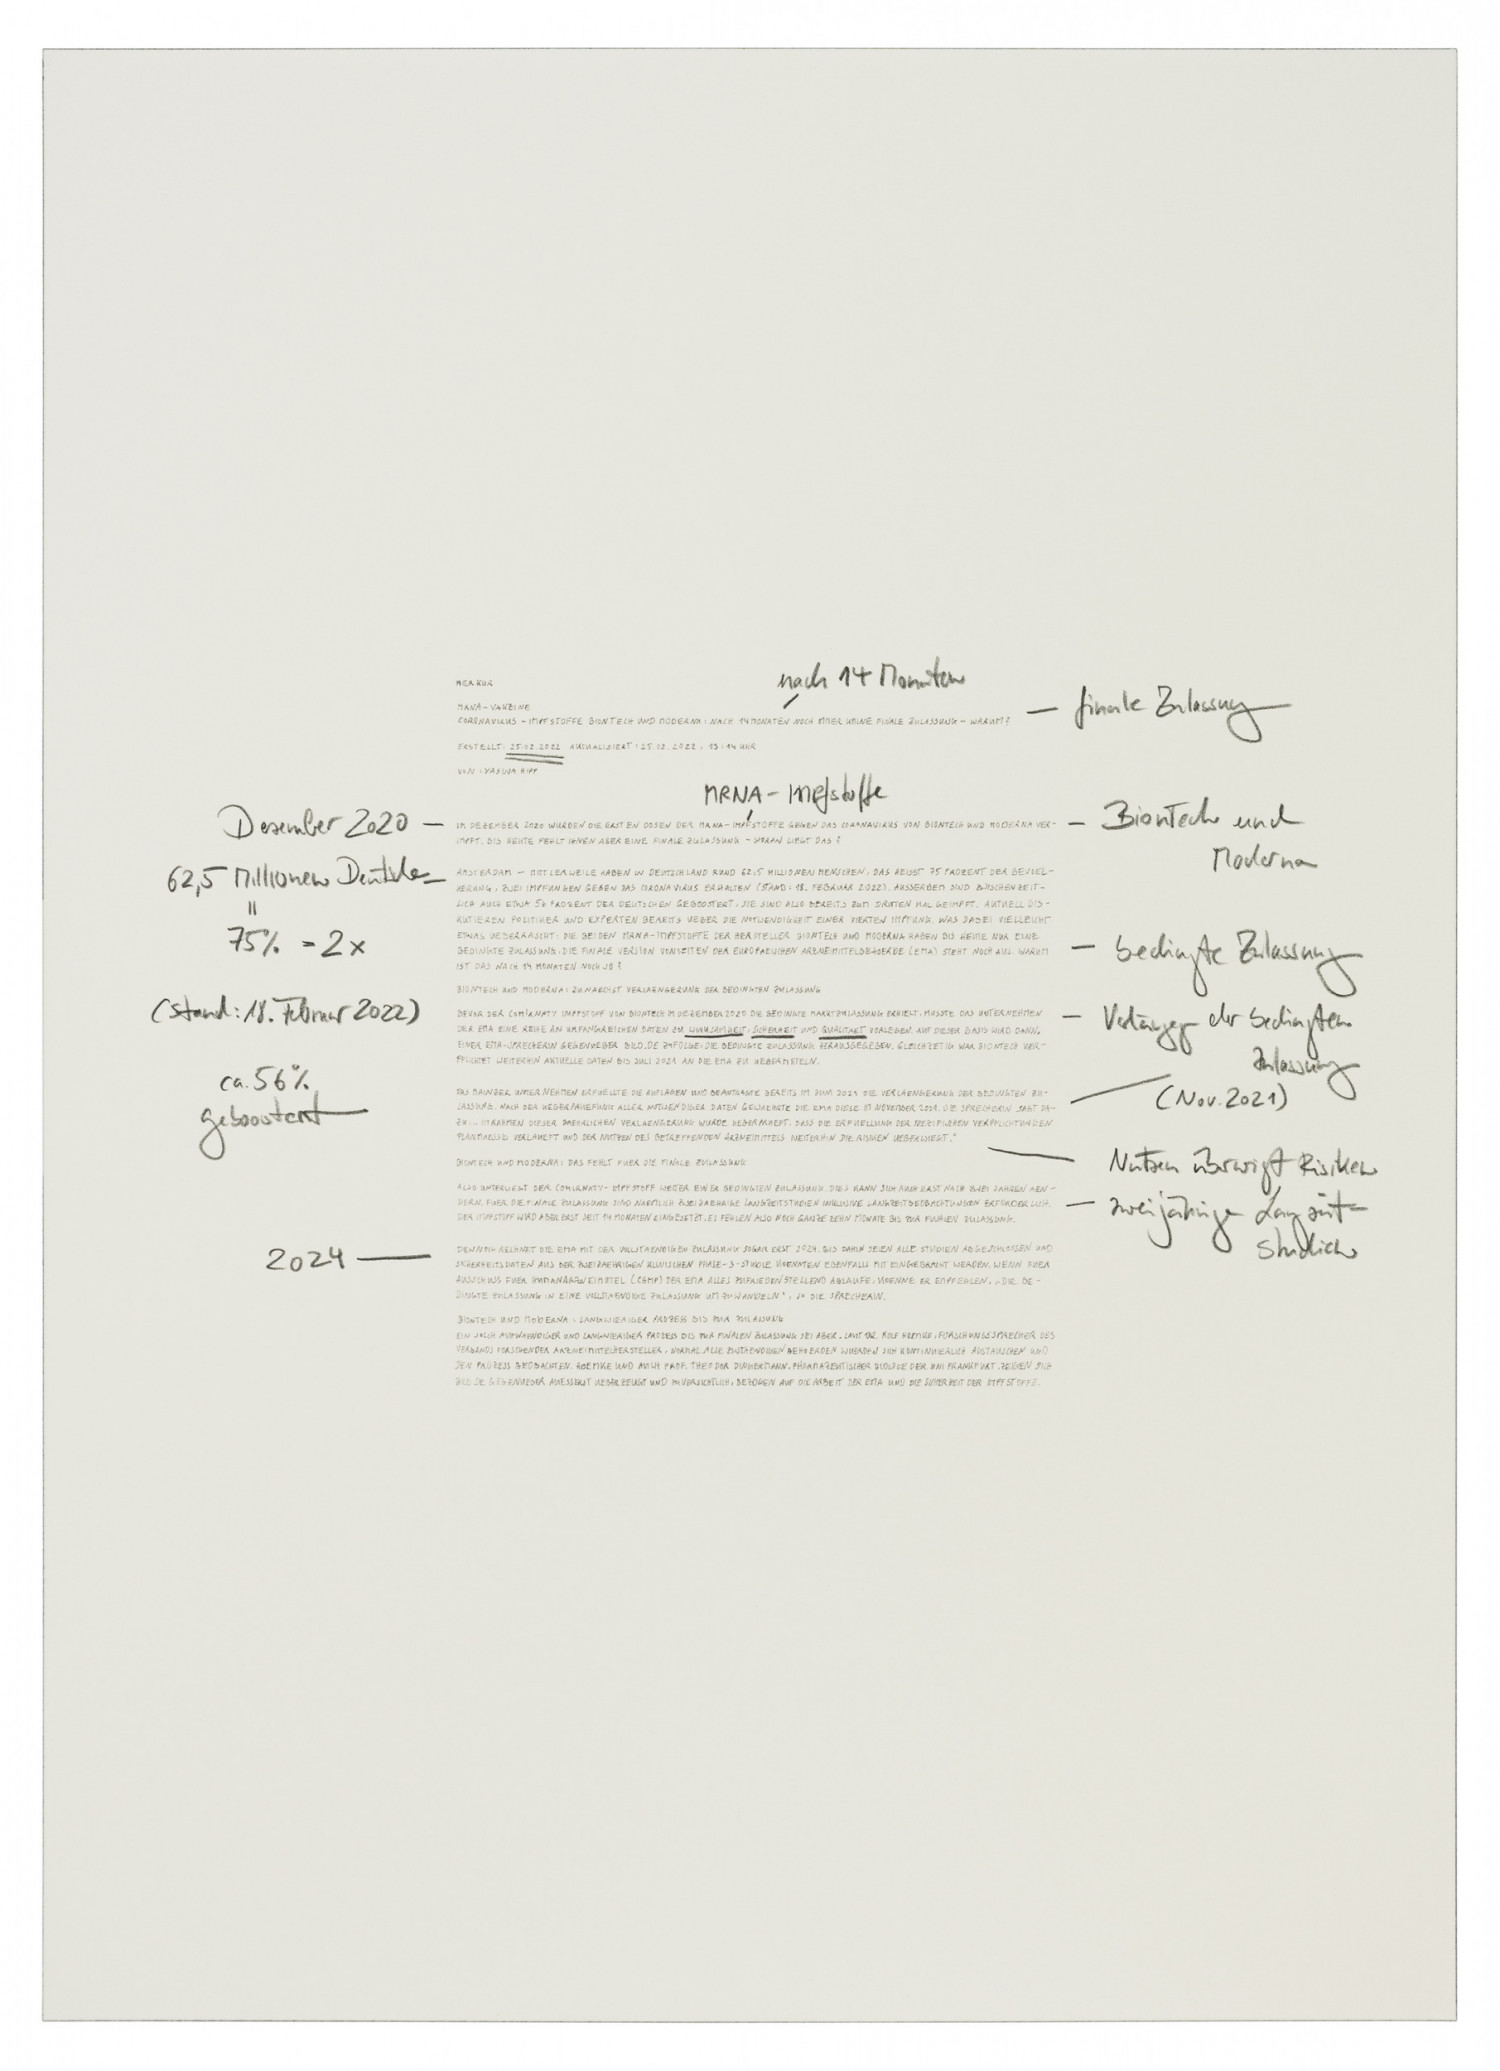 nach 14 Monaten
MERKUR
MRNA-VAKZINE
CORONAVIRUS - IMPFSTOFFE BIONTECH UND MODERNA: NACH 14 MONATEN NOCH IMMER KEINE FINALE ZULASSUNG - WARUM?
finale Zulassung
ERSTELLT: 25.02.2022 AKTUALISIERT: 25.02.2022, 13:14 UHR
VON: HIPP
MRNA-Impfstoffe
Dezember 2020
IM DEZEMBER 2020 WURDEN DIE ERSTEN DOSEN DER MRNA-IMPFSTOFFE GEGEN DAS CORONAVIRUS VON BIONTECH UND MODERNA VER-
IMPFT. BIS HEUTE FEHLT IHNEN ABER EINE FINALE ZULASSUNG - WORAN LIEGT DAS?
Biontech und
Moderna
62,5 Millionen Deutsche
=
75% = 2x
(Stand: 18. Februar 2022)
ca. 56%
geboostert
AMSTERDAM - MITTLERWEILE HABEN IN DEUTSCHLAND RUND 62,5 MILLIONEN MENSCHEN, DAS HEISST 75 PROZENT DER BEVOEL-
KERUNG, ZWEI IMPFUNGEN GEGEN DAS CORONAVIRUS ERHALTEN (STAND: 18. FEBRUAR 2022). AUSSERDEM SIND ZWISCHENZEIT-
LICH AUCH ETWA 56 PROZENT DER DEUTSCHEN GEBOOSTERT, SIE SIND ALSO BEREITS ZUM DRITTEN MAL GEIMPFT. AKTUELL DIS-
KUTIEREN POLITIKER UND EXPERTEN BEREITS UEBER DIE NOTWENDIGKEIT EINER VIERTEN IMPFUNG. WAS DABEI VIELLEICHT
ETWAS UEBERRASCHT: DIE BEIDEN MRNA-IMPFSTOFFE DER HERSTELLER BIONTECH UND MODERNA HABEN BIS HEUTE NUR EINE
BEDINGTE ZULASSUNG. DIE FINALE VERSION VONSEITEN DER EUROPAEISCHEN ARZNEIMITTELBEHOERDE (EMA) STEHT NOCH AUS. WARUM
IST DAS NACH 14 MONATEN NOCH SO?
bedingte Zulassung
BIONTECH UND MODERNA: ZUNAECHST VERLAENGERUNG DER BEDINGTEN ZULASSUNG
BEVOR DER COMIRNATY IMPFSTOFF VON BIONTECH IM DEZEMBER 2020 DIE BEDINGTE MARKTZULASSUNG ERHIELT, MUSSTE DAS UNTERNEHMEN
DER EMA EINE REIHE AN UMFANGREICHEN DATEN ZU WIRKSAMKEIT, SICHERHEIT UND QUALITAET VORLEGEN. AUF DIESER BASIS WIRD DANN,
EINER EMA-SPRECHERIN GEGENUEBER BILD.DE ZUFOLGE, DIE BEDINGTE ZULASSUNG HERAUSGEGEBEN. GLEICHZEITIG WAR BIONTECH VER-
PFLICHTET WEITERHIN AKTUELLE DATEN BIS JULI 2021 AN DIE EMA ZU UEBERMITTELN.
der bedingten
Zulassung
(Nov. 2021)
DAS MAINZER UNTERNEHMEN ERFUELLTE DIE AUFLAGEN UND BEANTRAGTE BEREITS IM JUNI 2021 DIE VERLAENGERUNG DER BEDINGTEN ZU-
LASSUNG. NACH DER UEBERPRUEFUNG ALLER NOTWENDIGER DATEN GEWAEHRTE DIE EMA DIESE IM NOVEMBER 2021. DIE SPRECHERIN SAGT DA-
ZU: RAHMEN DIESER JAEHRLICHEN VERLAENGERUNG WURDE UEBERPRUEFT, DASS DIE ERFUELLUNG DER SPEZIFISCHEN VERPFLICHTUNGEN
PLANMAESSIG VERLAEUFT UND DER NUTZEN DES BETREFFENDEN ARZNEIMITTELS WEITERHIN DIE RISIKEN UEBERWIEGT."
Nutzen überwiegt Risiken
BIONTECH UND MODERNA: DAS FEHLT FUER DIE FINALE ZULASSUNG
ALSO UNTERLIEGT DER COMIRNATY-IMPFSTOFF WEITER EINER BEDINGTEN ZULASSUNG. DIES KANN SICH AUCH ERST NACH ZWEI JAHREN AEN-
DERN. FUER DIE FINALE ZULASSUNG SIND NAEMLICH ZWEIJAEHRIGE LANGZEITSTUDIEN INKLUSIVE LANGZEITBEOBACHTUNGEN ERFORDERLICH.
DER IMPFSTOFF WIRD ABER ERST SEIT 14 MONATEN EINGESETZT. ES FEHLEN ALSO NOCH GANZE ZEHN MONATE BIS ZUR FINALEN ZULASSUNG.
zweijährige Langzeit-
studien
2024
DENNOCH RECHNET DIE EMA MIT DER VOLLSTAENDIGEN ZULASSUNG SOGAR ERST 2024. BIS DAHIN SEIEN ALLE STUDIEN ABGESCHLOSSEN UND
SICHERHEITSDATEN AUS DER ZWEIJAEHRIGEN KLINISCHEN PHASE-3-STUDIE KOENNTEN EBENFALLS MIT EINGEBRACHT WERDEN. WENN FUER
AUSSCHUSS FUER HUMANARZNEIMITTEL (CHMP) DER EMA ALLES ZUFRIEDENSTELLEND ABLAUFE, KOENNE ER EMPFEHLEN, „DIE BE-
DINGTE ZULASSUNG IN EINE VOLLSTAENDIGE ZULASSUNG UMZUWANDELN", SO DIE SPRECHERIN.
BIONTECH UND MODERNA: LANGWIERIGER PROZESS BIS ZUR ZULASSUNG
EIN SOLCH AUFWAENDIGER UND LANGWIERIGER PROZESS BIS ZUR FINALEN ZULASSUNG SEI ABER, LAUT DR. ROLF HOEMKE, FORSCHUNGSSPRECHER DES
VERBANDS FORSCHENDER ARZNEIMITTELHERSTELLER, NORMAL. ALLE ZUSTAENDIGEN BEHOERDEN WUERDEN SICH KONTINUIERLICH AUSTAUSCHEN UND
DEN PROZESS BEOBACHTEN. HOEMKE UND AUCH PROF. THEODOR DINGERMANN, PHARMAZEUTISCHER BIOLOGE DER UNI FRANKFURT, ZEIGEN SICH
BILD.DE GEGENUEBER AEUSSERST UEBERZEUGT UND ZUVERSICHTLICH, BEZOGEN AUF DIE ARBEIT DER EMA UND DIE SICHERHEIT DER IMPFSTOFFE.